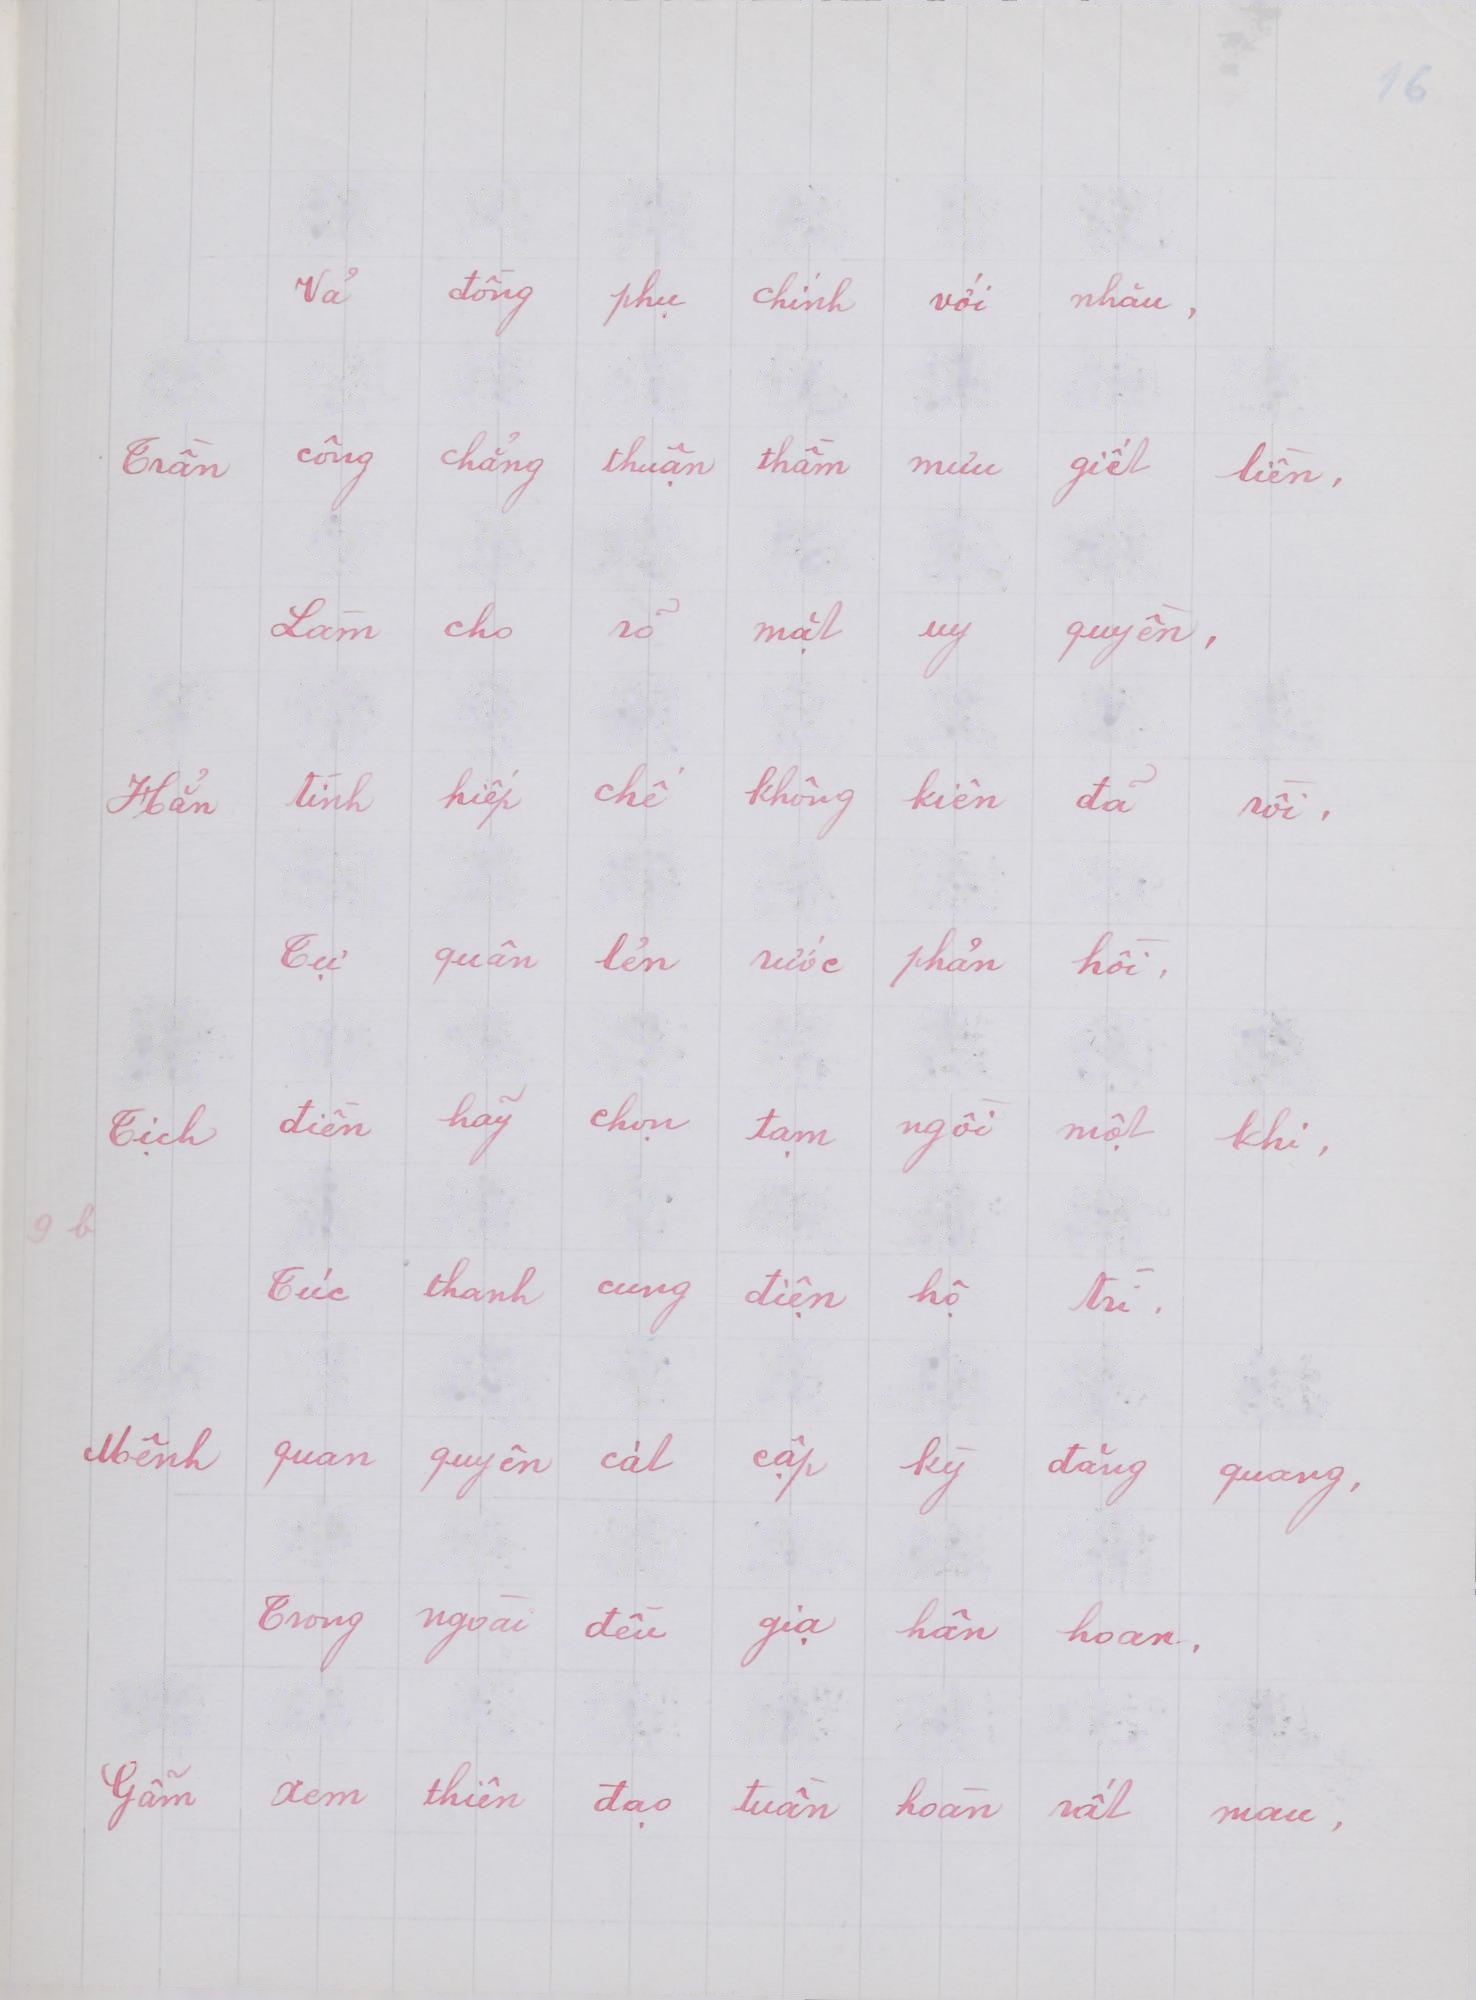 16
Vả đồng phụ chính với nhău,
Trần công chẳng thuận thầm mưu giết liền,
Làm cho rõ mặt uy quyền,
Hẳn tình hiếp chế không kiên đã rồi,
Tự quân lẻn rước phản hồi,
Tịch điền hãy chọn tạm ngồi một khi,
9 b
Túc thanh cung điện hộ trì.
Mênh quan quyên cát cập kỳ đăng quang,
Trong ngoài đều giạ hân hoan,
Gẫm xem thiên đạo tuần hoàn rất mau,